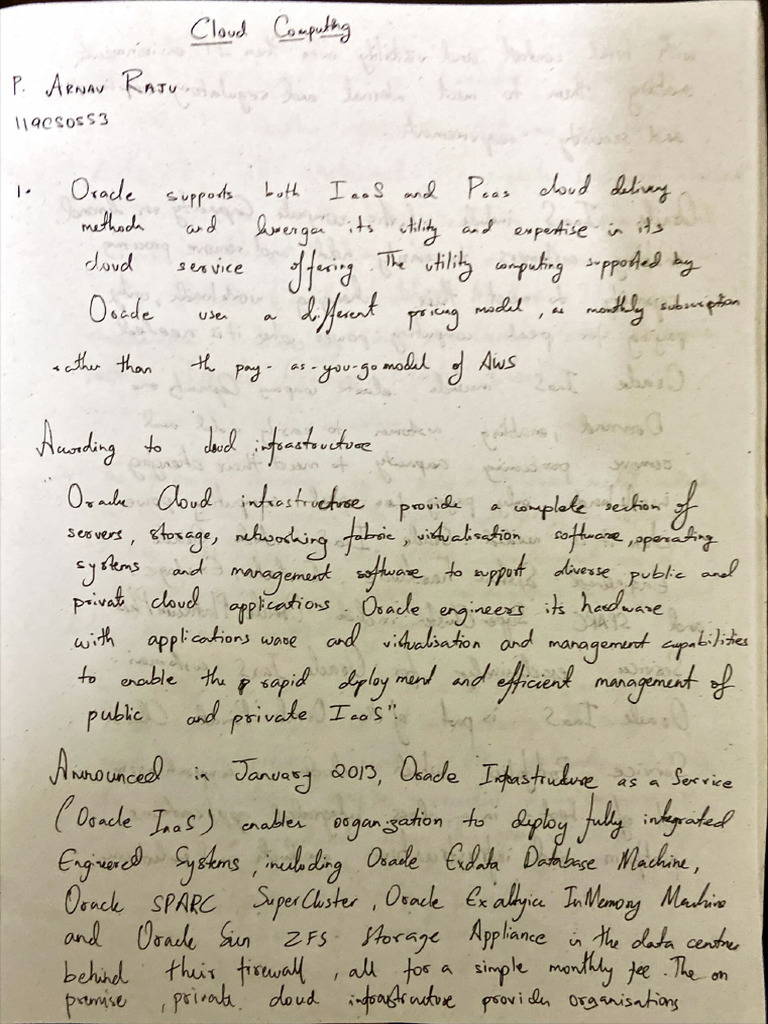 Cloud Computing
P. ARNAV RAJU
119CS0553
1. Oracle supports both IaaS and Paas cloud delivery
methods and leverages its utility and expertise in its
cloud service offering. The utility computing supported by
Oracle uses a different pricing model, as monthly subscription
rather than th pay-as-you-go model of AWS
According to cloud infrastructure
"Oracle Cloud infrastructure provide a complete section of
servers, storage, networking fabric, virtualisation software, operating
systems and management software to support diverse public and
private cloud applications. Oracle engineers its hardware
with applications ware and virtualisation and management capabilities
to enable the rapid deployment and efficient management of
public and private IaaS".
Announced in January 2013, Oracle Infrastructure as a Service
(Oracle IaaS) enables organization to deploy fully integrated
Engineered Systems, including Oracle Exdata Database Machine,
Oracle SPARC SuperCluster, Oracle Exalytics InMemory Machine
and Oracle Sun ZFS Storage Appliance in the data centres
behind their firewall, all for a simple monthly fee. The on
premise, private cloud infrastructure provides organisations